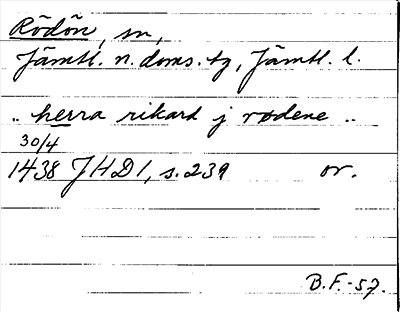 Rödön, sn,
Jämtl. n. doms. tg, Jämtl. l.
.. herra rikard j rødene ..
30/4
1438 JHD 1, s. 239 or.
B.F.-57.